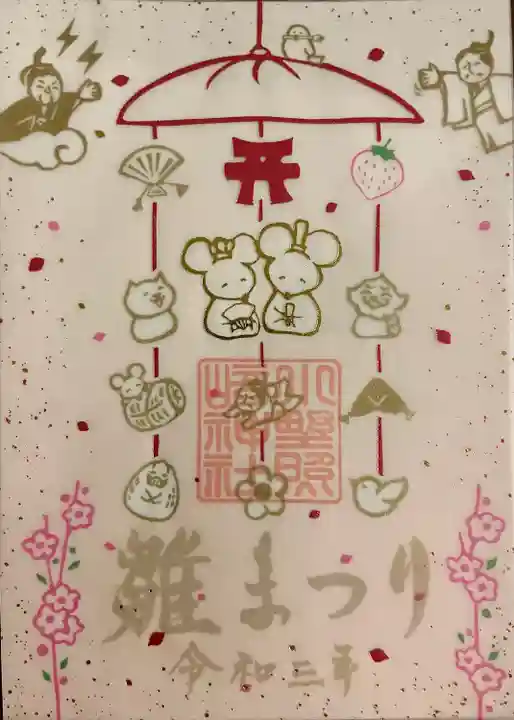 小野照
崎神社
雛まつり
令和三年